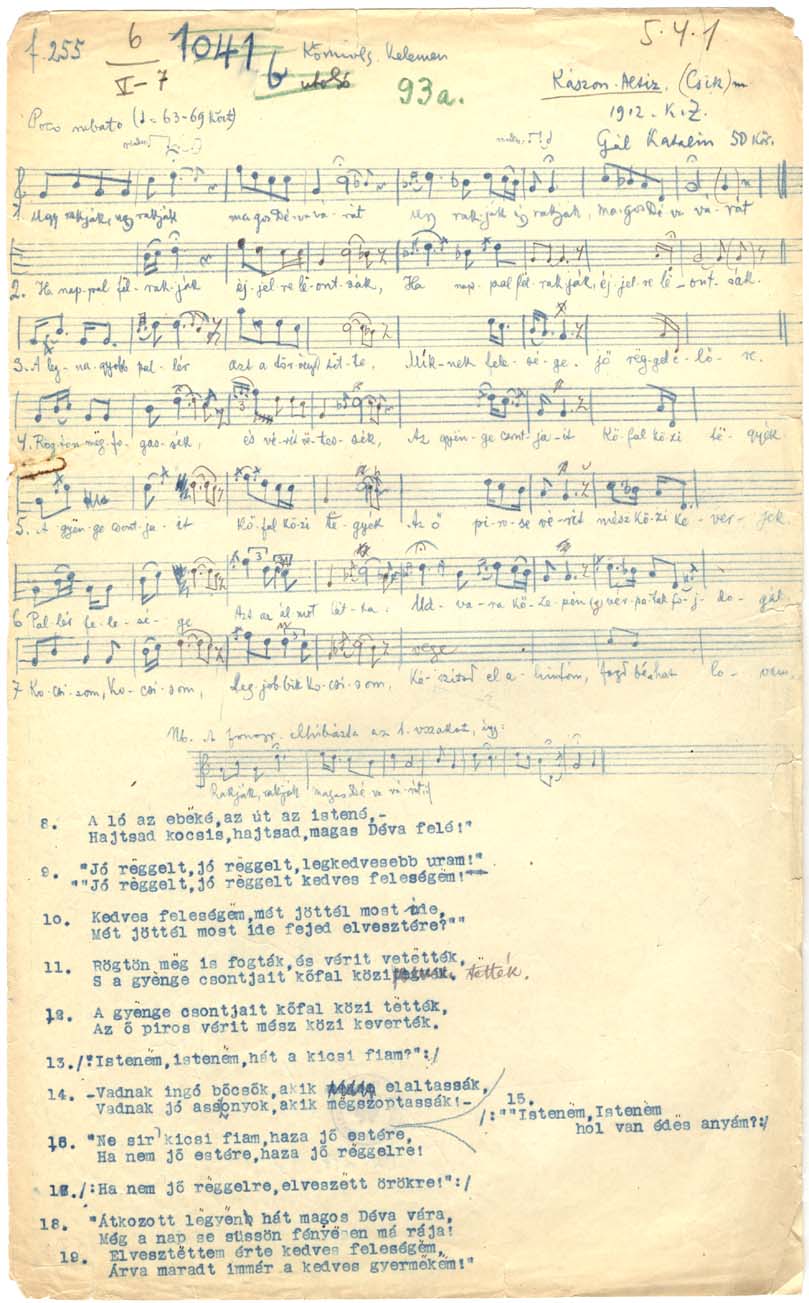 f.255 6 1041 b Kőmives Kelemen 5.4.1
V-7 utolsó 93a. Kászon-Altiz. (Csik) m
1912. K.Z.
Poco rubato (♩= 63-69 Gál Katalin 50
1. Ugy rakják, ugy rakják magos Dé-va vá-rát Ugy rak-ják ugy rakják, ma-gos Dé-va vá-rát
2. Ha nap-pal fël-rak-ják éj-jel-re lë-ont-sák, Ha nap-pal fël-rakják, éj-jel-re lë-ont-sák.
3. A leg-na-gyobb pal-lér azt a tör-vényt töt-te, Mik-nek fele-sé-ge jő rëg-gel e-lő-re.
4. Rögtön mëg-fo-gas-sék, és vé-rit vë-tes-sék, Az gyën-ge csont-ja-it Kő-fal kö-zi të-gyék
5. A gyën-ge csont-ja-it Kő-fal kö-zi të-gyék Az ő pi-ro-se vé-rit mész kö-zi ke-ver-jek
6 Pal-lér fe-le-sé-ge Azt az ál-mot lát-ta. Ud-va-ra kö-ze-pén vér-pa-tak fo-j-do-gál
7 Ko-csi-som, Ko-csi-som, Leg-job-bik Ko-csi-som, vége Ké-szitsd el a hintóm, fogd bé hat lo-vam,
Nb. A fonogr. elhibázta az 1. vszakot, így:
Rakják, rakják magos Dé va vá-rát:/
8. A ló az ebëké, az út az istené,-
Hajtsad kocsis, hajtsad, magas Déva felé!"
9. "Jó rëggelt, jó rëggelt, legkedvesebb uram!"
""Jó rëggelt, jó rëggelt kedves feleségëm!""
10. Kedves feleségëm, mét jöttél most ide,
Mét jöttél most ide fejed elvesztére?""
11. Rögtön mëg is fogták, és vérit vetëtték,
S a gyënge csontjait kőfal közi tëtték.
12. A gyënge csontjait kőfal közi tëtték,
Az ő piros vérit mész közi keverték.
13. /:"Istenëm, istenëm, hát a kicsi fiam?":/
14. -Vadnak ingó bőcsők, akik elaltassák,
Vadnak jó asszonyok, akik mëgszoptassák!-
15.
/:""Istenëm, Istenëm
hol van édës anyám?:/
16. "Ne sir kicsi fiam, haza jő estére,
Ha nem jő estére, haza jő rëggelre!
17. /:Ha nem jő rëggelre, elveszëtt örökre!":/
18. "Átkozott lëgyën hát magos Déva vára,
Még a nap se süssön fényësen má rája!
19. Elvesztëttem érte kedves feleségëm,
Árva maradt immár a kedves gyermëkëm!"